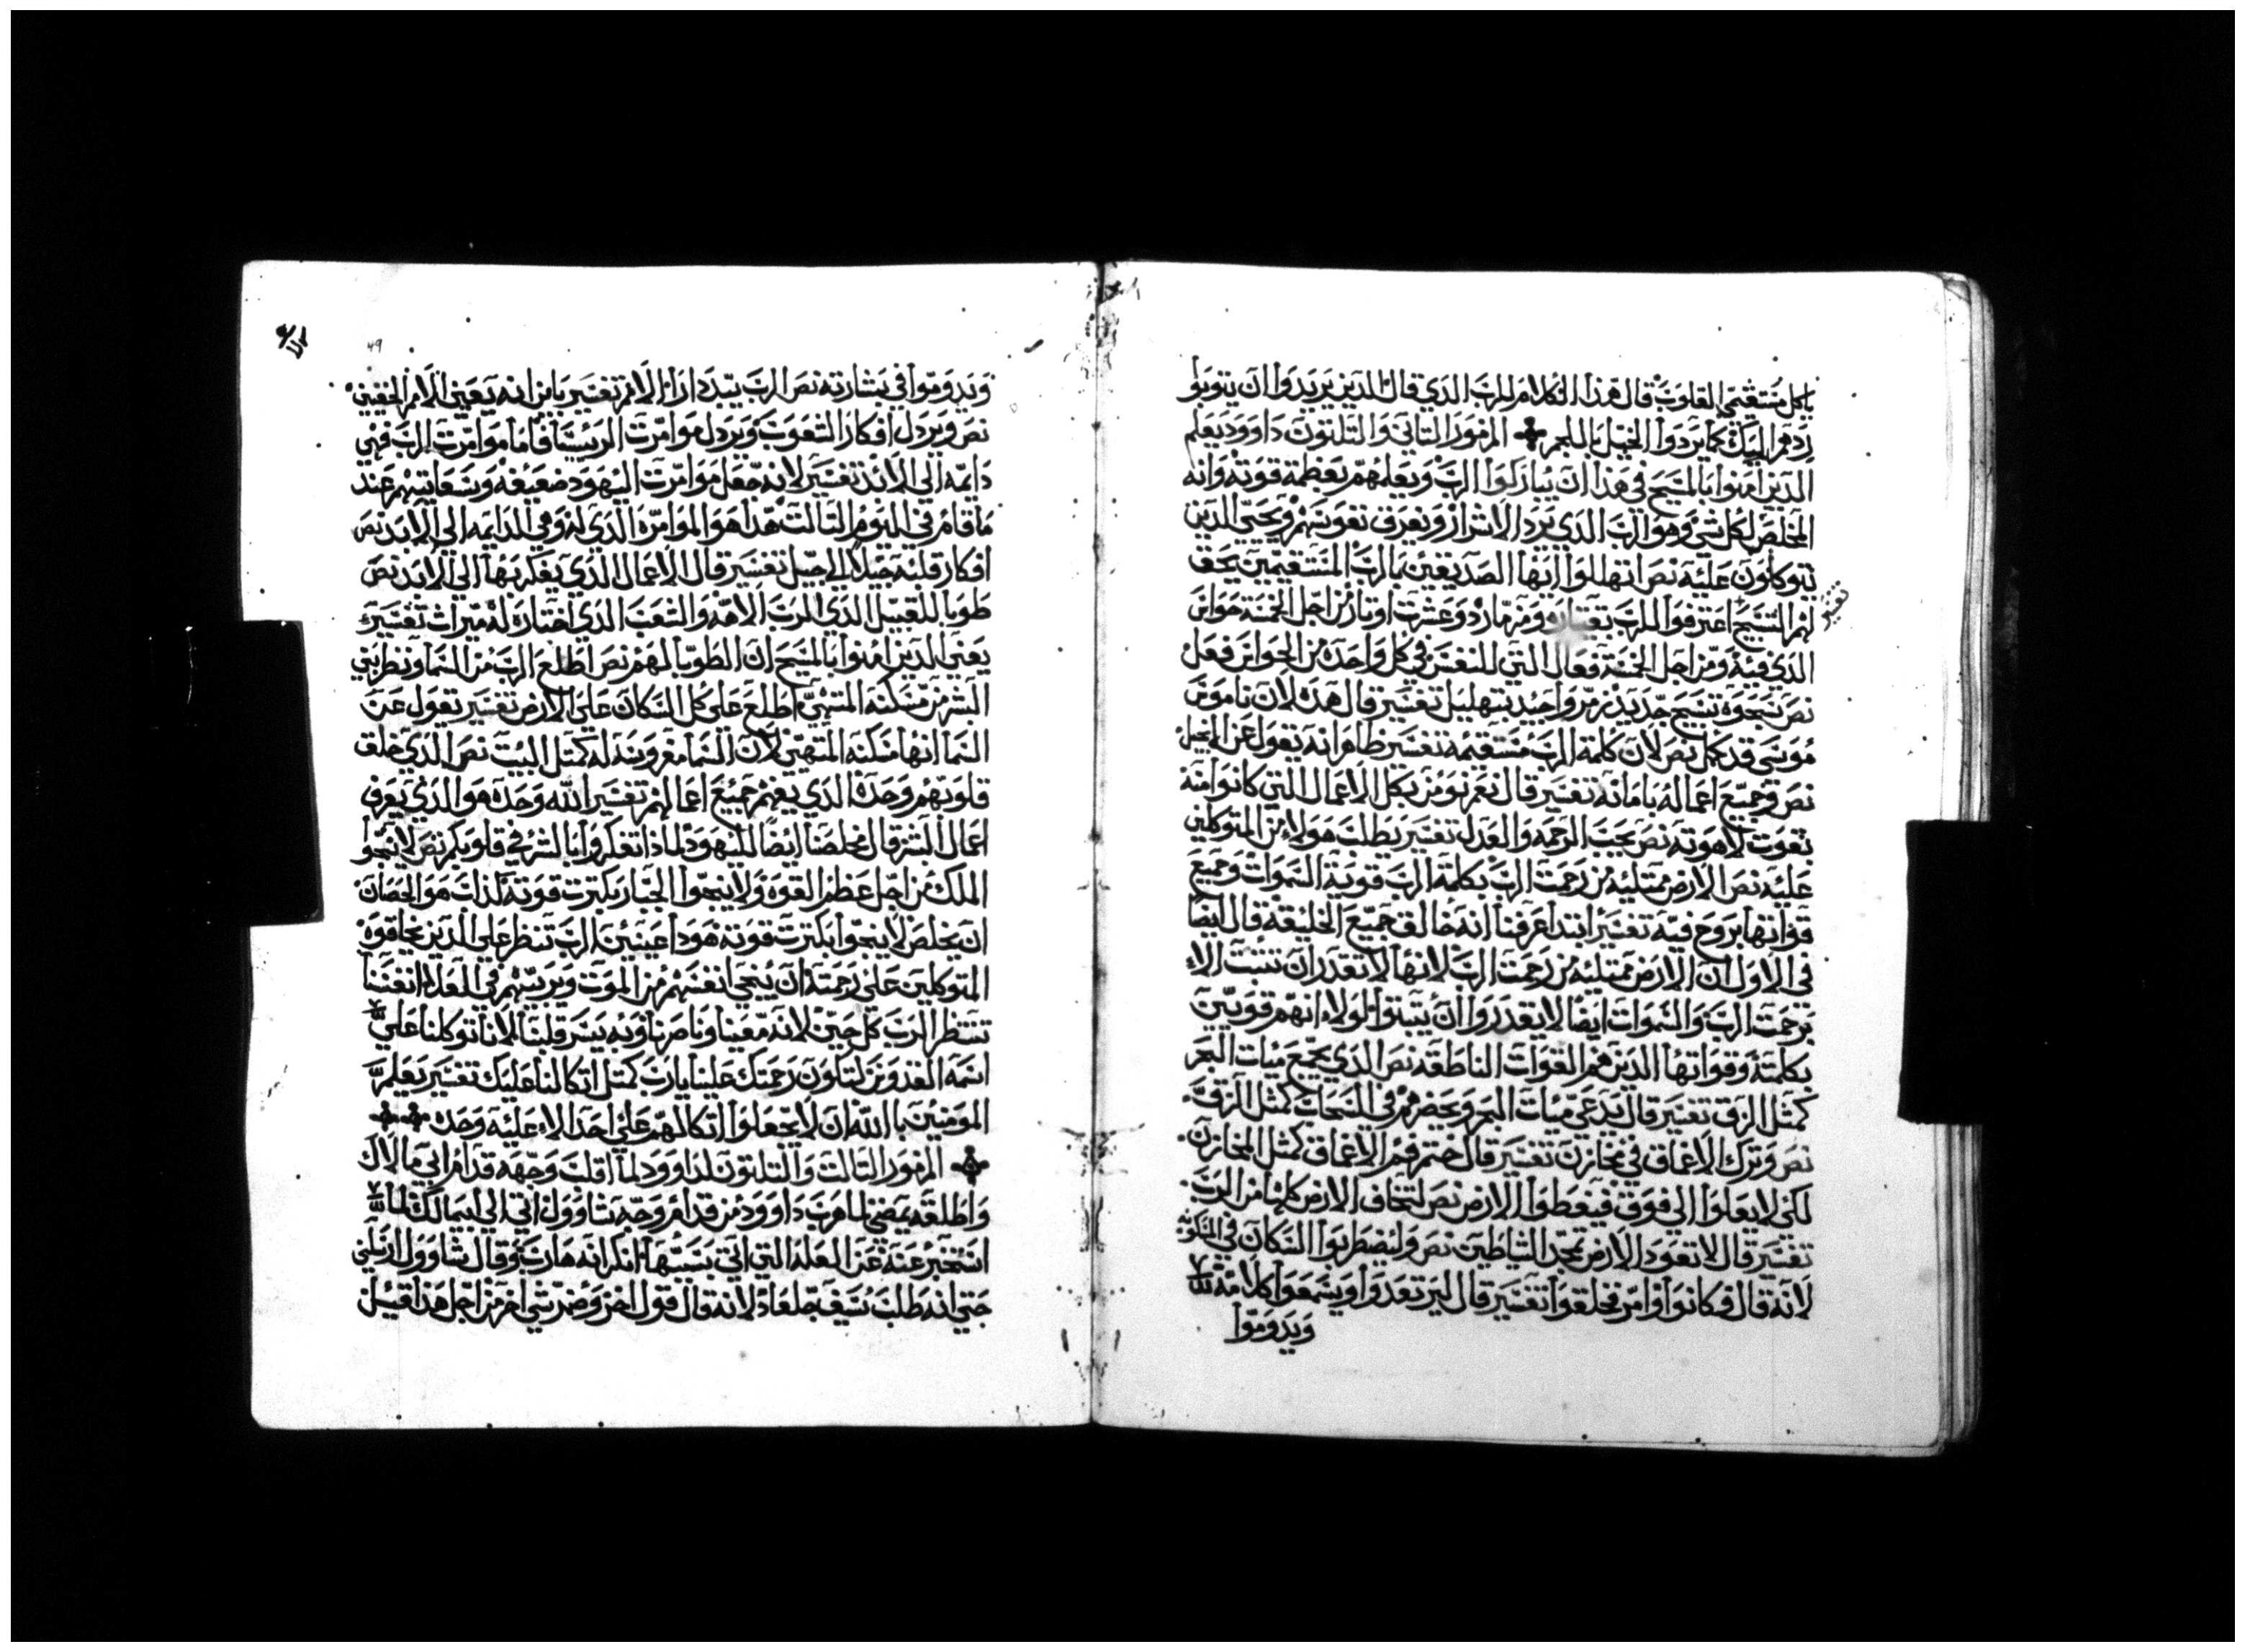 ياكل مستقيمي القلوب قال هذا الكلام للرب الدي قال الدين يريدوا ان يتوبوا
ردهم اليك كما يردوا الخيل باللجم المزمور التاني والتلتون داوود يعلم
الدين امنوا بالمسيح في هذا ان يباركوا الرب ويعلمهم بعظمة قوته وانه
المخلص لكل شي وهو الرب الدي يرد الاشرار ويعرف نفوسهم ويحيي الدين
يتوكلون عليه نص ابتهللوا ايها الصديقين بالرب المستقيمين يحق
لهم التسبيح اعترفوا للرب بقيتار ومزمار دو عشرت اوتار من اجل الخمسة حواس
تفسير
الدي فيه ومن اجل الخمسة فعال التي للنفس في كل واحدة من الحواس فعل
نص سبحوه تسبيح جديد رمروا جيد بتهليل تفسير قال هده لان ناموس
موسى قد كمل نص لان كلمة الرب مستقيمه تفسير ظاهر انه يقول عن الانجيل
نص وجميع اعماله بامانه تفسير قال نعم نومن بكل الاعمال التي كانوا منه
نعوت لاهوته نص يحب الرحمه والعدل تفسير يطلب هولاء من المتوكلين
عليه نص الارض ممتليه من رحمت الرب بكلمة الرب قوية السموات وجميع
قواتها بروح فيه تفسير ابتدا عرفنا انه خالق جميع الخليقة قال ايضا
في الاول ان الارض ممتليه من رحمت الرب لانها لا تقدر ان تتبت الاء
برحمت الرب والسموات ايضا لا يقدروا ان يتبتوا لولا انهم قويين
بكلمته وقواتها الدين هم القوات الناطقه نص الدي يجمع ميات البحر
كمثل الزق تفسير قال يدعى ميات البحر ويحضرهم في السحاب كمثل الزق
نص وترك الاعماق في مخازن تفسير قال ختم فم الاعماق كمثل المخازن
لكي لا يعلوا الى فوق فيغطوا الارض نص لتخاف الارض كلها من الرب
تفسير قال لا تعود الارض تمجد الشياطين نص وليضطربوا السكان في المسكونه
لانه قال فكانوا وامر فخلقوا تفسير قال ليرتعدوا ويسمعوا كلامه
ويدوموا
49
ويدوموا في بشارته نص الرب يبدد اراء الامم تفسير باين انه يعين الامم الحقيين
نص ويردل افكار الشعوب ويردل موامرت الريسا فاما موامرت الرب فهي
دايمه الى الابد تفسير لانه جعل موامرت اليهود ضعيفه وشعايتهم عند
ما قام في اليوم التالت هدا هو الموامره الدي له وهي الدايمه الى الابد نص
افكار قلبه جيلا الى جيل تفسير قال الاعمال الدي يفكر بها الى الابد نص
طوبا للقبيل الدي الرب الاهه والشعب الدي اختاره له ميراث تفسير
يعني الدين امنوا بالمسيح ان الطوبا لهم نص اطلع الرب من السما ونظر بني
البشر من مسكنه المتهيي اطلع على كل السكان على الارض تفسير يقول عن
السما انها مسكنه المتهيي لان السما مفروشه له كمثل البيت نص الدي خلق
قلوبهم وحده الدي يفهم جميع اعمالهم تفسير الله وحده هو الدي يعرف
اعمال البشر قال مخلصنا ايضا لليهود لمادا تفكروا بالشر في قلوبكم نص لا ينجوا
الملك من اجل عظم القوه ولا ينجوا الجبار بكترت قوته كداب هو الحصان
ان يخلص لا ينجوا بكترت قوته هودا عينين الرب تنظر على الدين يخافوه
المتوكلين على رحمته ان ينجي انفسهم من الموت ويربيهم في الغلاء انفسنا
تنتظر الرب كل حين لانه معيننا وناصرنا وبه يسر قلبنا لاننا توكلنا على
اسمه القدوس لتكون رحمتك علينا يارب كمثل اتكالنا عليك تفسير يعلم
المومنين بالله ان لا يجعلوا اتكالهم على احد الاء عليه وحده
المزمور التالت والتلتون لداوود لما اقلب وجهه قدام ابي مالاك
واطلقه يمضي لما هرب داوود من قدام وجه شاوول اتي الى ابيمالك لما
استخبر عنه عن العله التي اتي بسببها انكر انه هارب وقال شاوول ارسلني
حتي انه طلب سيف جلعاد لانه قال قول اخر وضد شي اخر من اجل هدا قيل